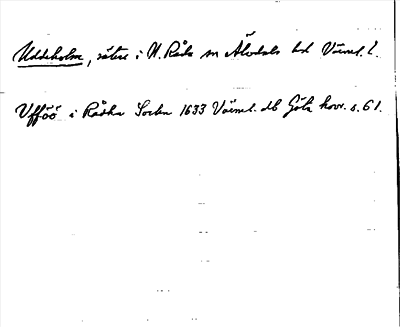 Uddeholm, säteri i N. Råda sn Älvdals hd Värml. l.
Ufföö i Rådha Sockn 1633 Värml. db Göta hovr. s. 61.